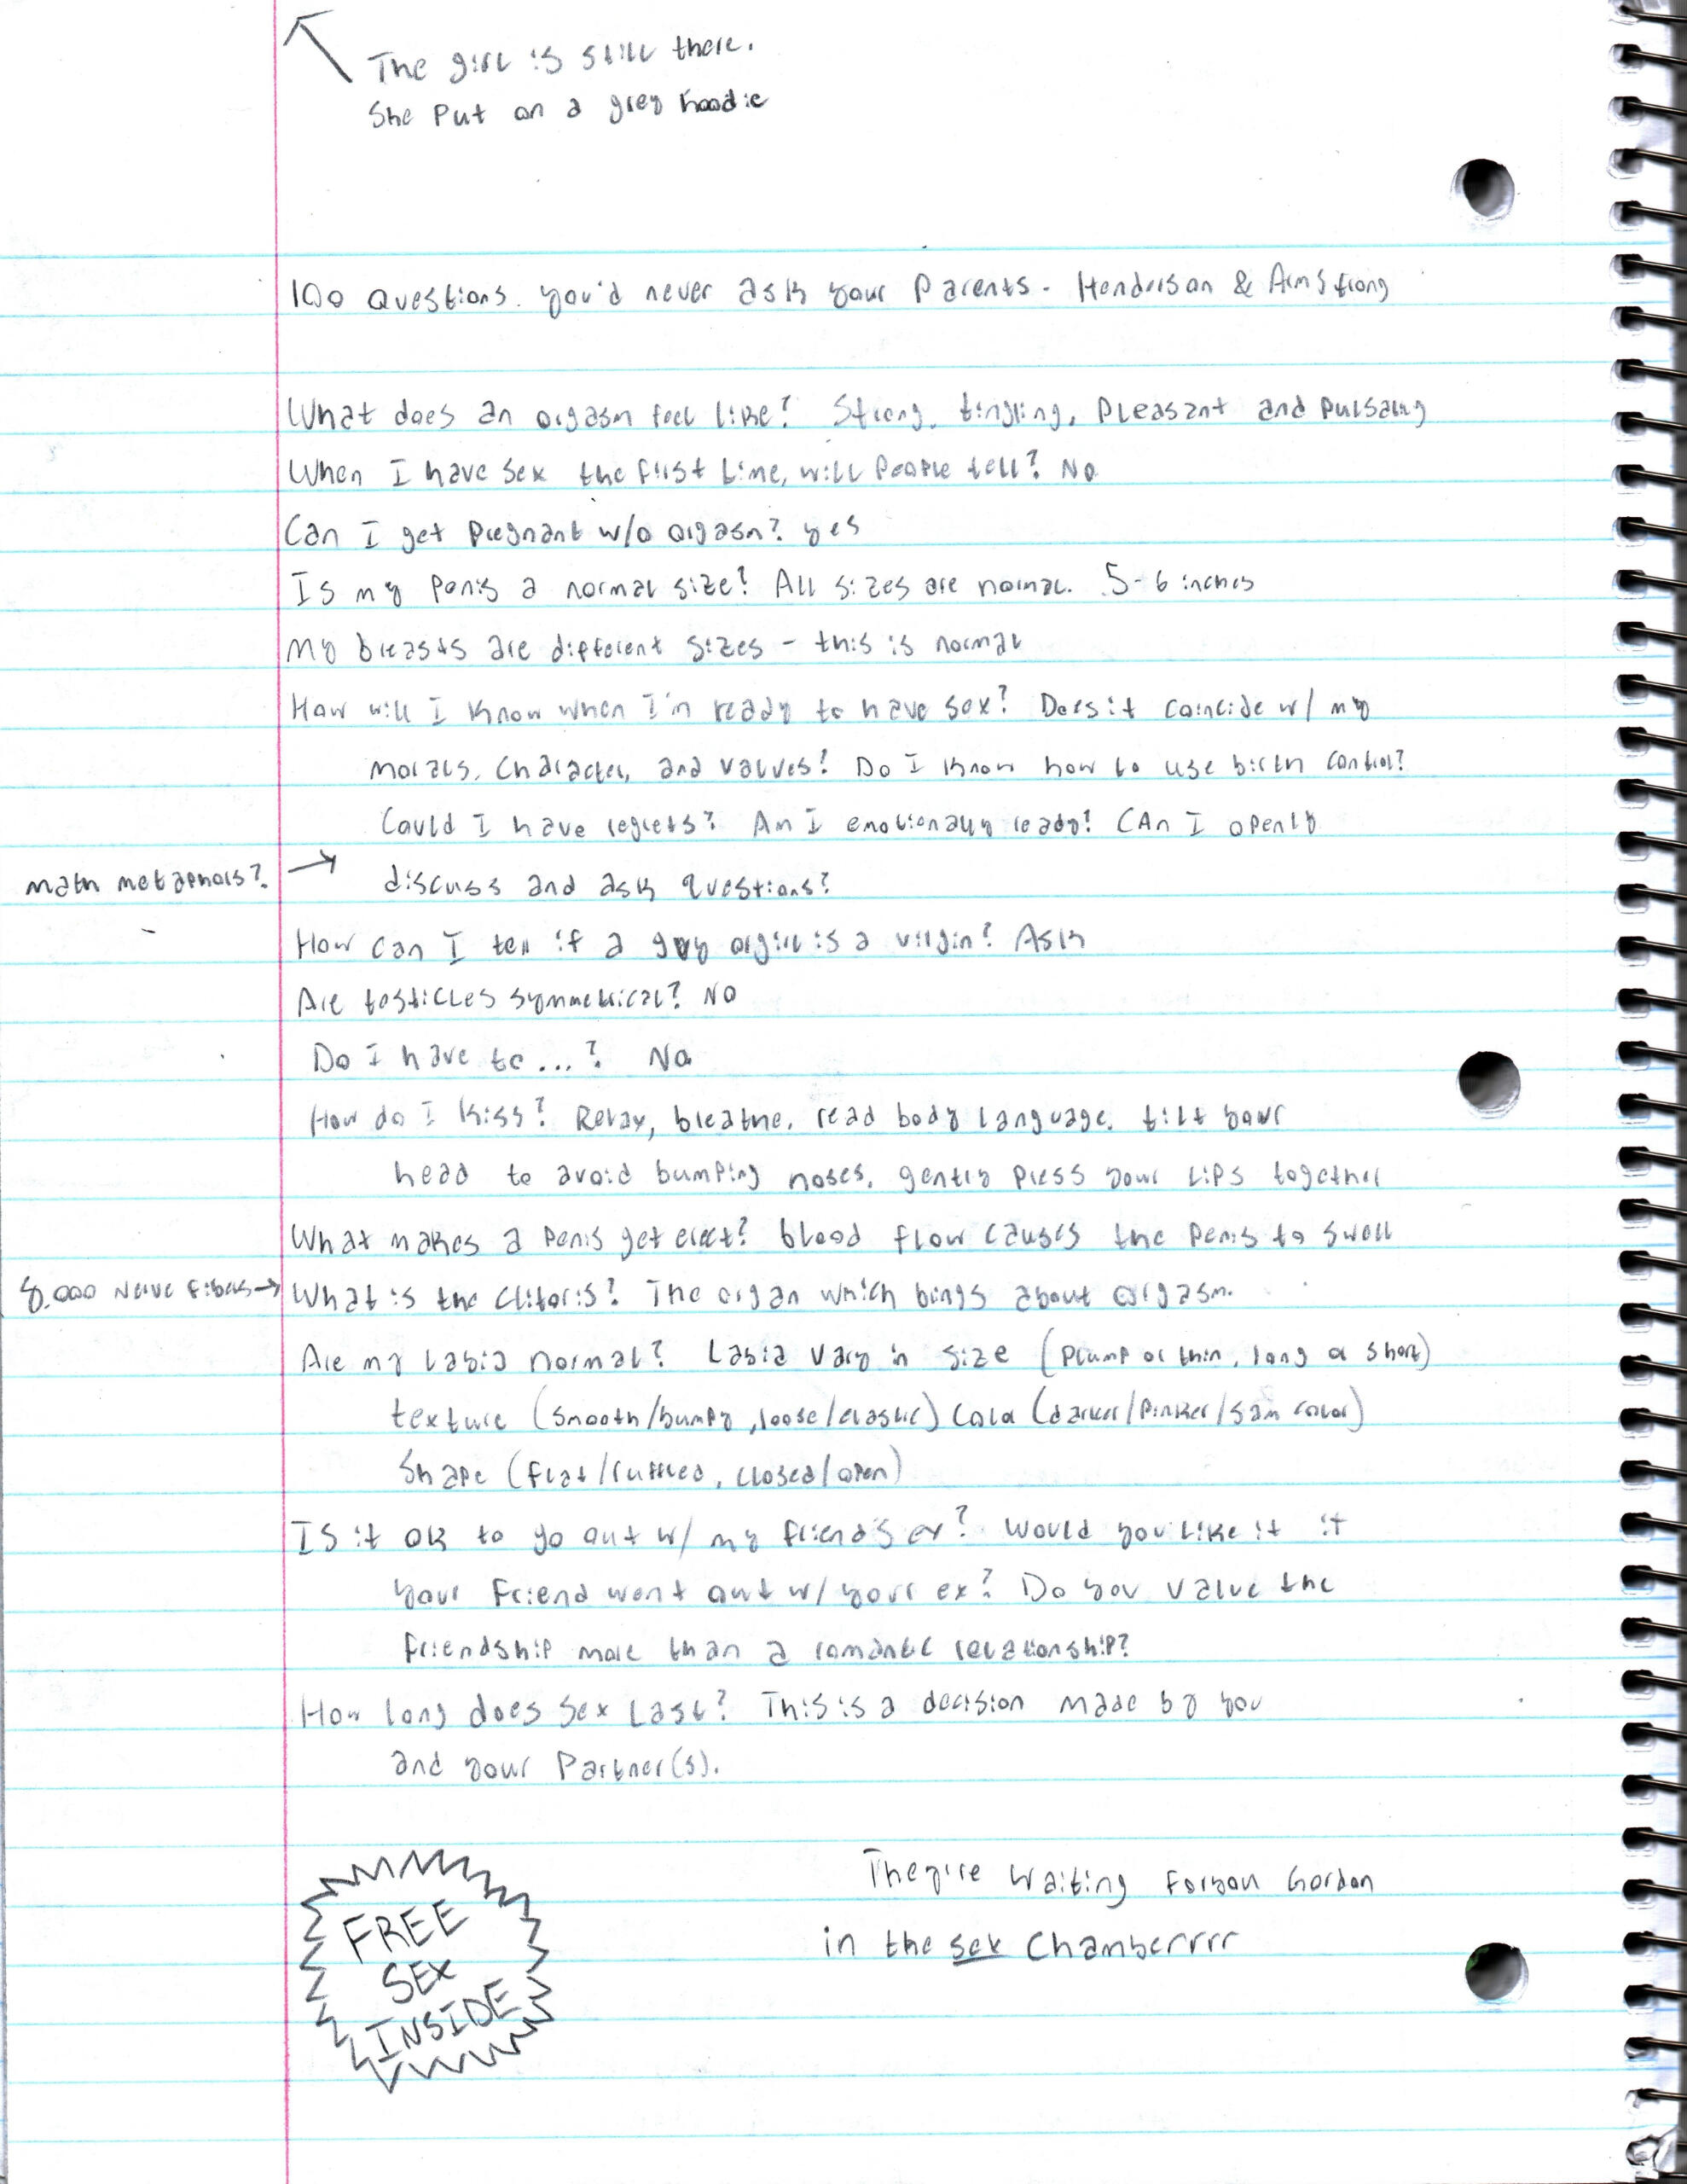 The girl is still there.
She Put on a grey hoodie
100 Questions you'd never ask your Parents - Henderson & Armstrong
What does an orgasm feel like? Strong, tingling, Pleasant and Pulsating
When I have sex the first time, will People tell? No
Can I get Pregnant w/o orgasm? yes
Is my Penis a normal size? All sizes are normal. 5-6 inches
My breasts are different sizes - this is normal
How will I know when I'm ready to have sex? Does it coincide w/ my
morals, character, and values? Do I know how to use birth control?
Could I have regrets? Am I emotionally ready? CAn I openly
math metaphors? → discuss and ask questions?
How can I tell if a guy or girl is a virgin? Ask
Are testicles symmetrical? No
Do I have to...? No
How do I kiss? Relax, breathe, read body language, tilt your
head to avoid bumping noses, gently press your lips together
What makes a Penis get erect? blood flow causes the Penis to swell
8,000 Nerve Fibers → What is the clitoris? The organ which bings about orgasm.
Are my labia normal? Labia vary in size (Plump or thin, long or short)
texture (smooth/bumpy, loose/elastic) Color (darker/Pinker/sam color)
Shape (flat/ruffled, closed/open)
Is it ok to go out w/ my friend's ex? Would you like it if
your Friend went out w/ your ex? Do you value the
friendship more than a romantic relationship?
How long does sex last? This is a decision made by you
and your Partner(s).
They're waiting for you Gordon
in the sex Chamberrrr
FREE
SEX
INSIDE